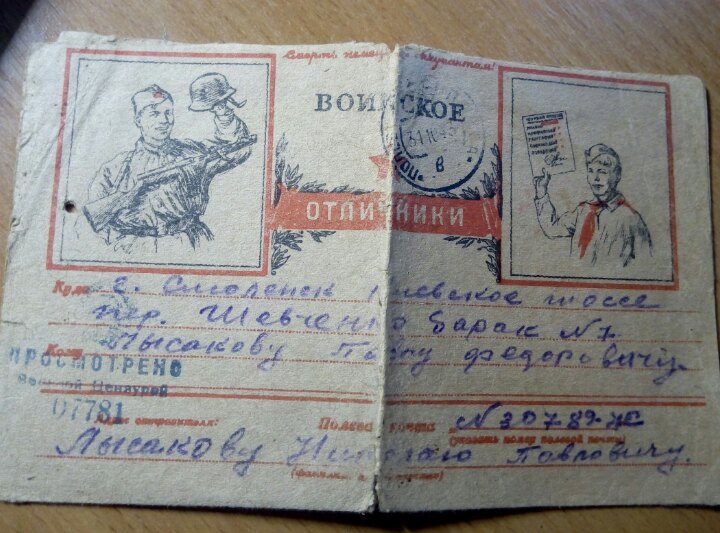 Смерть немецким оккупантам!
ВОИНСКОЕ
ПОЛЕВАЯ
В
ОТЛИЧНИКИ
Куда г. Смоленск Киевское шоссе
пер. Шевченко барак N 7.
Кому Лысакову Павлу Федоровичу.
ПРОСМОТРЕНО
Военной Цензурой
07781
Адрес отправителя: Полевая почта N 30789-Ж
(указать номер полевой почты)
Лысакову Николаю Павловичу.